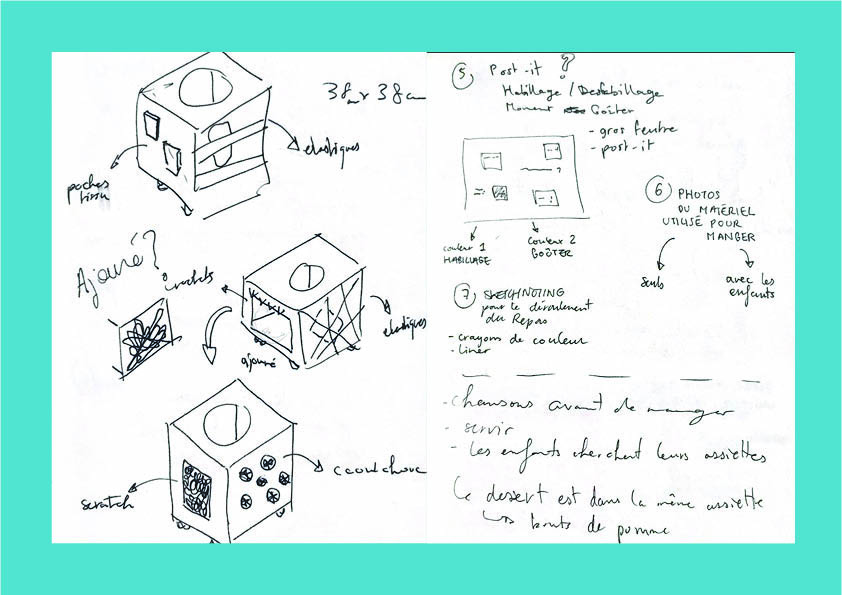 38cm x 38cm
élastiques
poches
tissu
Ajouré?
crochets
élastiques
ajouré
caoutchouc
scratch
5) Post-it ?
Habillage / Deshabillage
Moment Goûter
- gros feutre
- post-it
couleur 1
HABILLAGE
couleur 2
GOÛTER
6) PHOTOS
DU MATÉRIEL
UTILISÉ POUR
MANGER
seuls
avec les
enfants
7) SKETCHNOTING
pour le déroulement
du Repas
- crayons de couleur
- liner
- chansons avant de manger
- servir
- Les enfants cherchent leurs assiettes
Le desert est dans la même assiette
↳ bouts de pomme